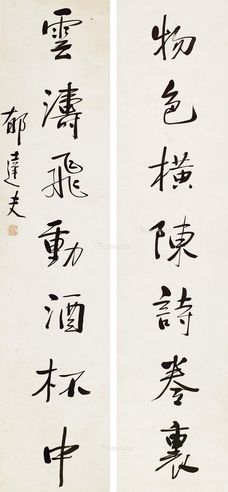 物色橫陳詩卷裏
雲濤飛動酒杯中
郁達夫